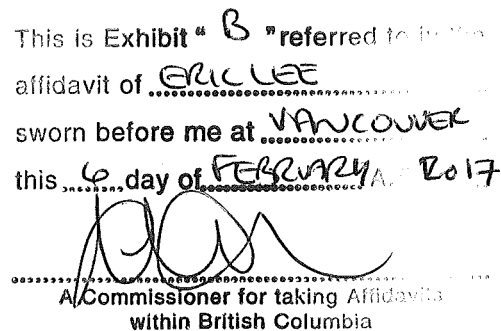 This is Exhibit " B " referred to in the
affidavit of ERIC LEE
sworn before me at VANCOUVER
this 6 day of FEBRUARY A. 2017
A Commissioner for taking Affidavits
within British Columbia